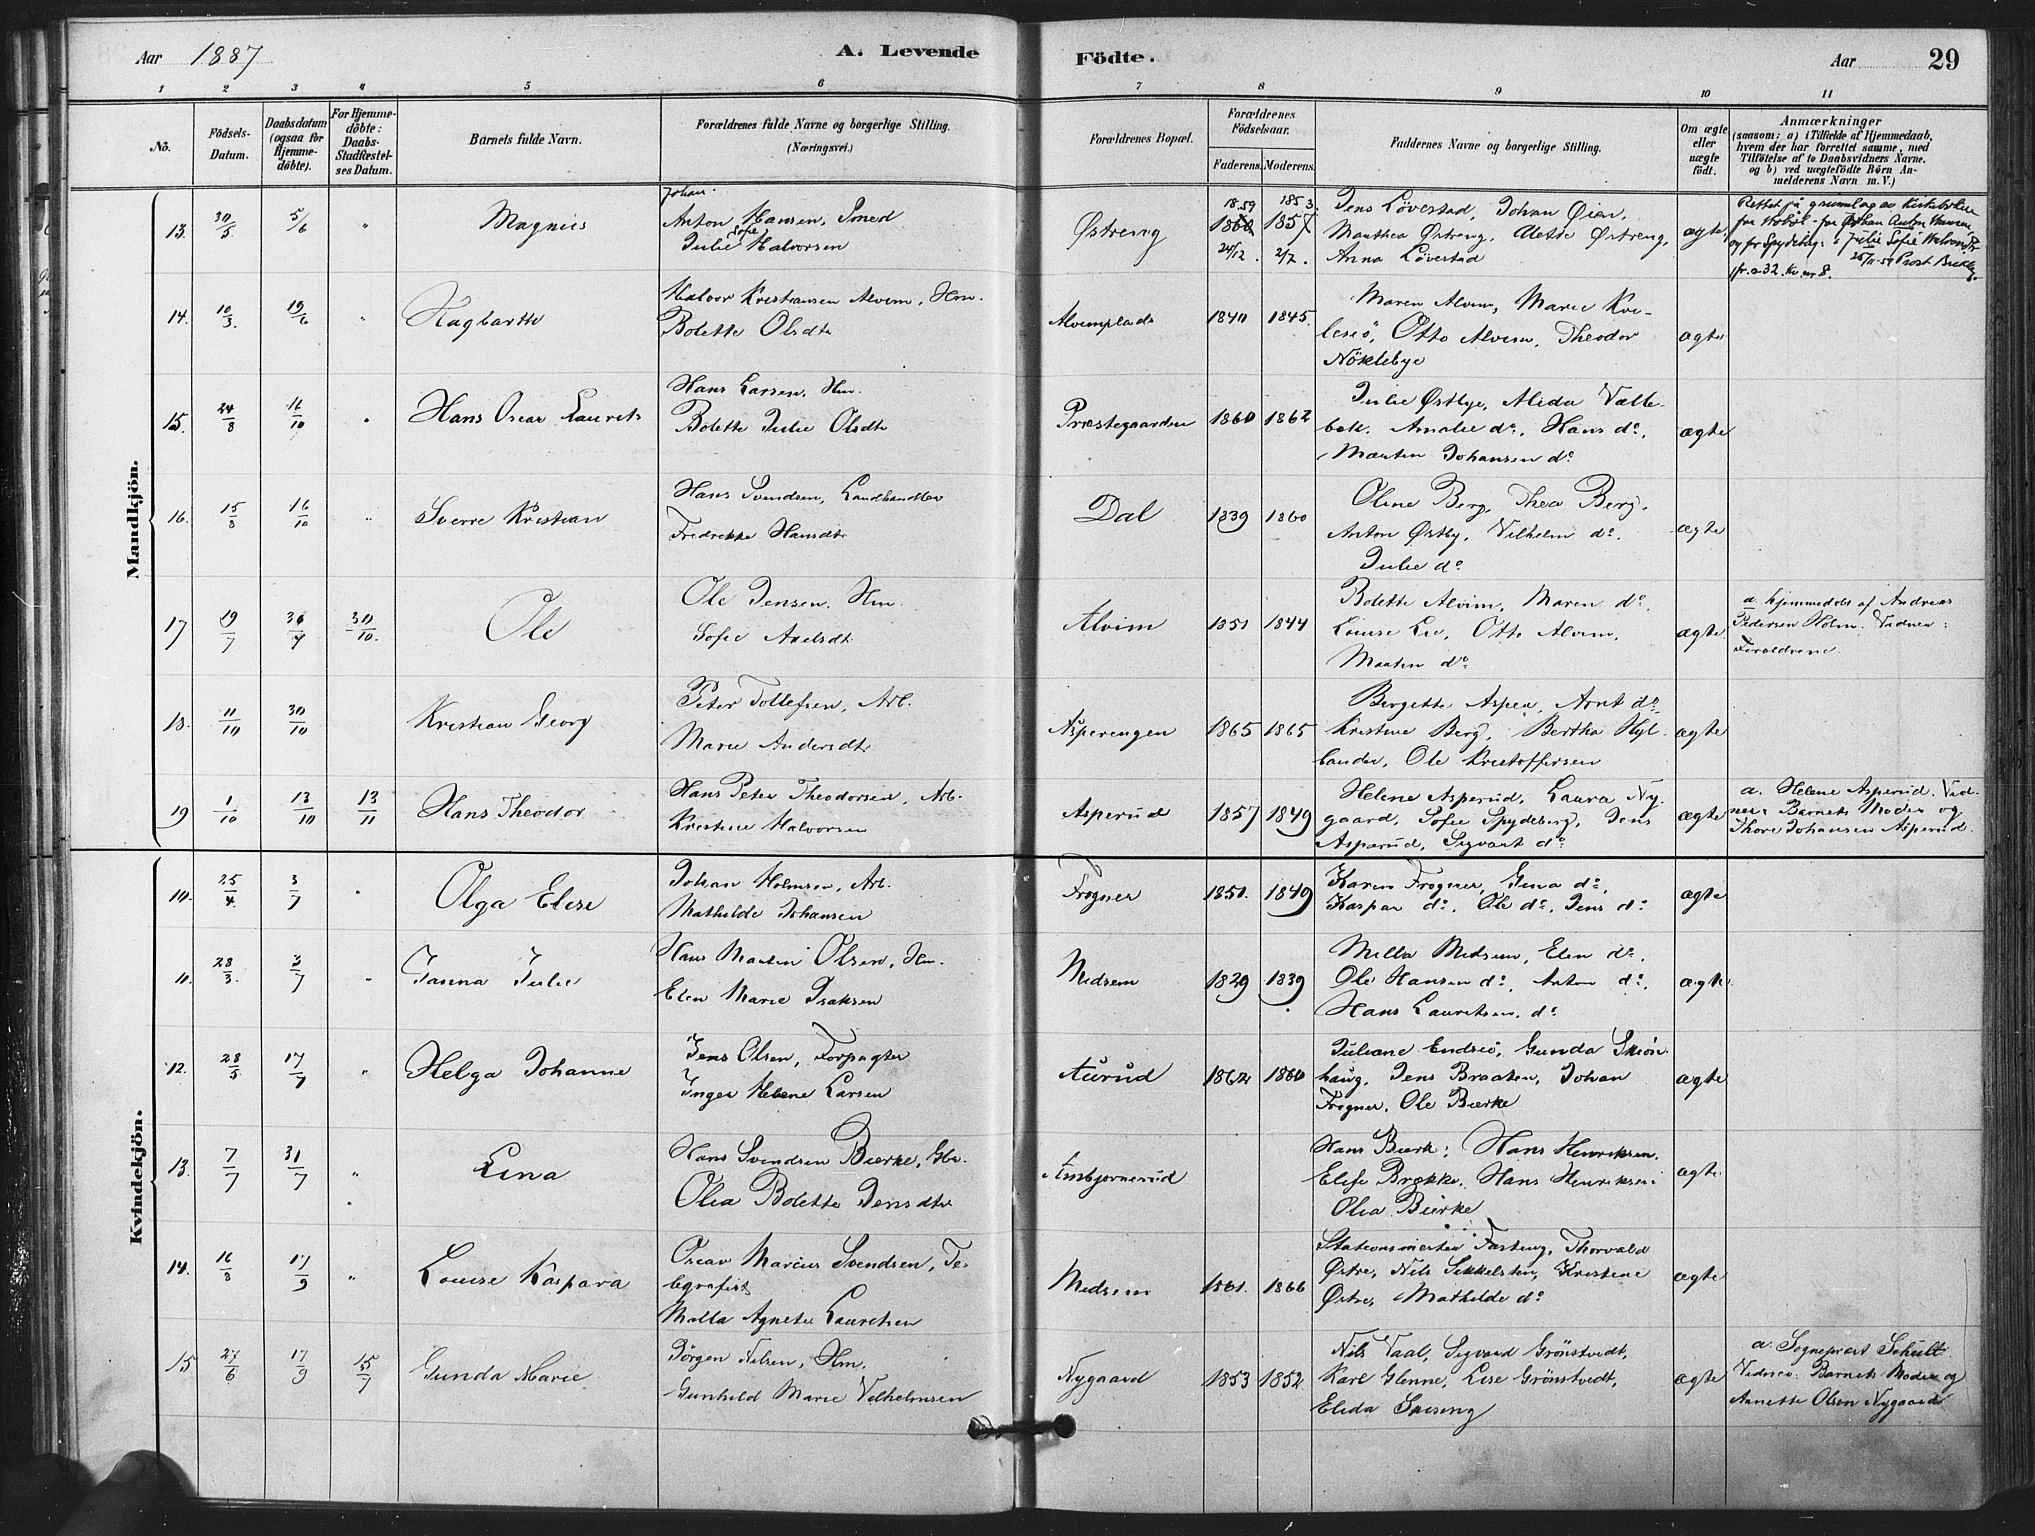 Aar 1887 A. Levende Födte. Aar 29
1 2 3 4 5 6 7 8 9 10 11
No.
Födsels-Datum.
Daabsdatum (ogsaa for Hjemme-døbte).
For Hjemme-døbte: Daabs-Stadfæstel-ses Datum.
Barnets fulde Navn.
Forældrenes fulde Navne og borgerlige Stilling.
(Næringsvei.)
Forældrenes Bopæl.
Forældrenes Födselsaar.
Faderens. Moderens.
Faddernes Navne og borgerlige Stilling.
Om ægte eller uægte født.
Anmærkninger
(saasom: a) i Tilfælde af Hjemmedaab,
hvem der har forrettet samme, med
Tilføielse af to Daabsvidners Navne.
og b) ved uægtefödte Börn An-
melderens Navn m. V.)
Mandkjön.
13. 30/5 5/6 " Magnus
Johan.
Anton Hansen, Smed
Julie Sofie Halvorsen
Østreng
1859 1853.
1860 1857
24/12. 2/7.
Jens Løvestad, Johan Øien,
Marthea Østreng, Alette Østreng,
Anna Løvestad
ægte,
Rettet på grunnlag av kirkeboken
for Hobøl - for Johan Anton Hansen
og for Spydeberg: Julie Sofie
25/11-59 Prost
14. 10/3. 19/6 " Hagbarth
Halvor Kristiansen Alvim, Hm.
Bolette Olsdtr
Alvimplads 1840 1845.
Maren Alvim, Marie Kve-
lesiö, Otto Alvim, Theodor
Nöklebye
ægte
15. 24/8 16/10 " Hans Oscar Laurits
Hans Larsen, Hm.
Bolette Julie Olsdtr
Præstegaarden 1860 1862
Julie Østbye, Alida Vælte-
bek, Amalie do, Hans do,
Martin Johansen do
ægte
16. 15/8 16/10 " Sverre Kristian
Hans Svendsen, Landhandler
Fredrikke Hansdtr
Dal 1839 1860
Oline Berg, Thea Berg,
Anton Østby, Vilhelm do.
Julie do
ægte
17 19/7 30/7 30/10. Ole
Ole Jensen, Hm.
Sofie Axelsdtr
Alvim 1851 1844
Bolette Alvim, Maren do.
Louise Lie, Otto Alvim,
Martin do
ægte
a. hjemmedøbt af Andreas
Pedersen Holm. Vidner:
Forældrene
18. 11/10 30/10 Kristian Georg
Peter Tollefsen, Arb.
Marie Andersdtr
Asperengen 1865 1865
Bergitte Aspen, Arnt do,
Kristine Berg, Bertha Hyl-
lander, Ole Kristoffersen
ægte
19 1/10 13/10 13/11 Hans Theodor
Hans Peter Theodorsen, Arb.
Kristine Halvorsen
Asperud 1857 1849
Helene Asperud, Laura Ny-
gaard, Sofie Spydeberg, Jens
Asperud, Sigvart do
ægte
a. Helene Asperud. Vid-
ner: Barnets Moder og
Thore Johansen Asperud.
Kvindekjön.
10. 25/4. 3/7 " Olga Elise
Johan Holmsen, Arb.
Mathilde Johansen
Frogner 1850. 1849
Karen Frogner, Gina do,
Kaspar do. Ole do, Jens do
ægte
11. 28/3. 3/7 " Janna Julie
Hans Martin Olsen, Hm.
Elen Marie Isaksen
Medsem 1829 1839
Milla Medsem, Elen do.
Ole Hansen do, Anton do,
Hans Lauritsen, do
ægte
12. 28/5 17/7 " Helga Johanne
Jens Olsen, Forpagter
Inger Helene Larsen
Aurud 1862 1860
Juliane Endsiö, Gunda Skiøn-
haug, Jens Braaten, Johan
Frogner, Ole Bierke
ægte
13. 7/7 31/7 " Lina
Hans Svendsen Bierke, Gbr.
Olia Bolette Jensdtr
Ambjørnerud
Hans Bierk; Hans Henriksen,
Elise Brække, Hans Henriksen
Olia Bierke
ægte
14. 16/8 17/9 " Louise Kaspara
Oscar Marius Svendsen, Te-
legrafist
Malla Agnete Lauritsen
Medsem 1861. 1866
Stationsmester Fasting, Thorvald
Østre, Nils Sikkelsten, Kristine
Østre, Mathilde do
ægte
15 27/6 17/9 15/7 Gunda Marie
Jørgen Nilsen, Hm.
Gunhild Marie Vilhelmsen
Nygaard 1853 1852
Nils Vaal, Sigvard Grönstvedt,
Karl Glenne, Lise Grönstvedt,
Elida
ægte
a. Sogneprest Schult.
Vidner: Barnets Moder og
Annette Olsen Nygaard